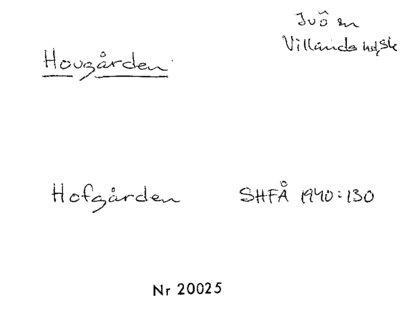 Ivö sn
Villands hd, Sk
Hovgården
Hofgården SHFÅ 1940:130
Nr 20025